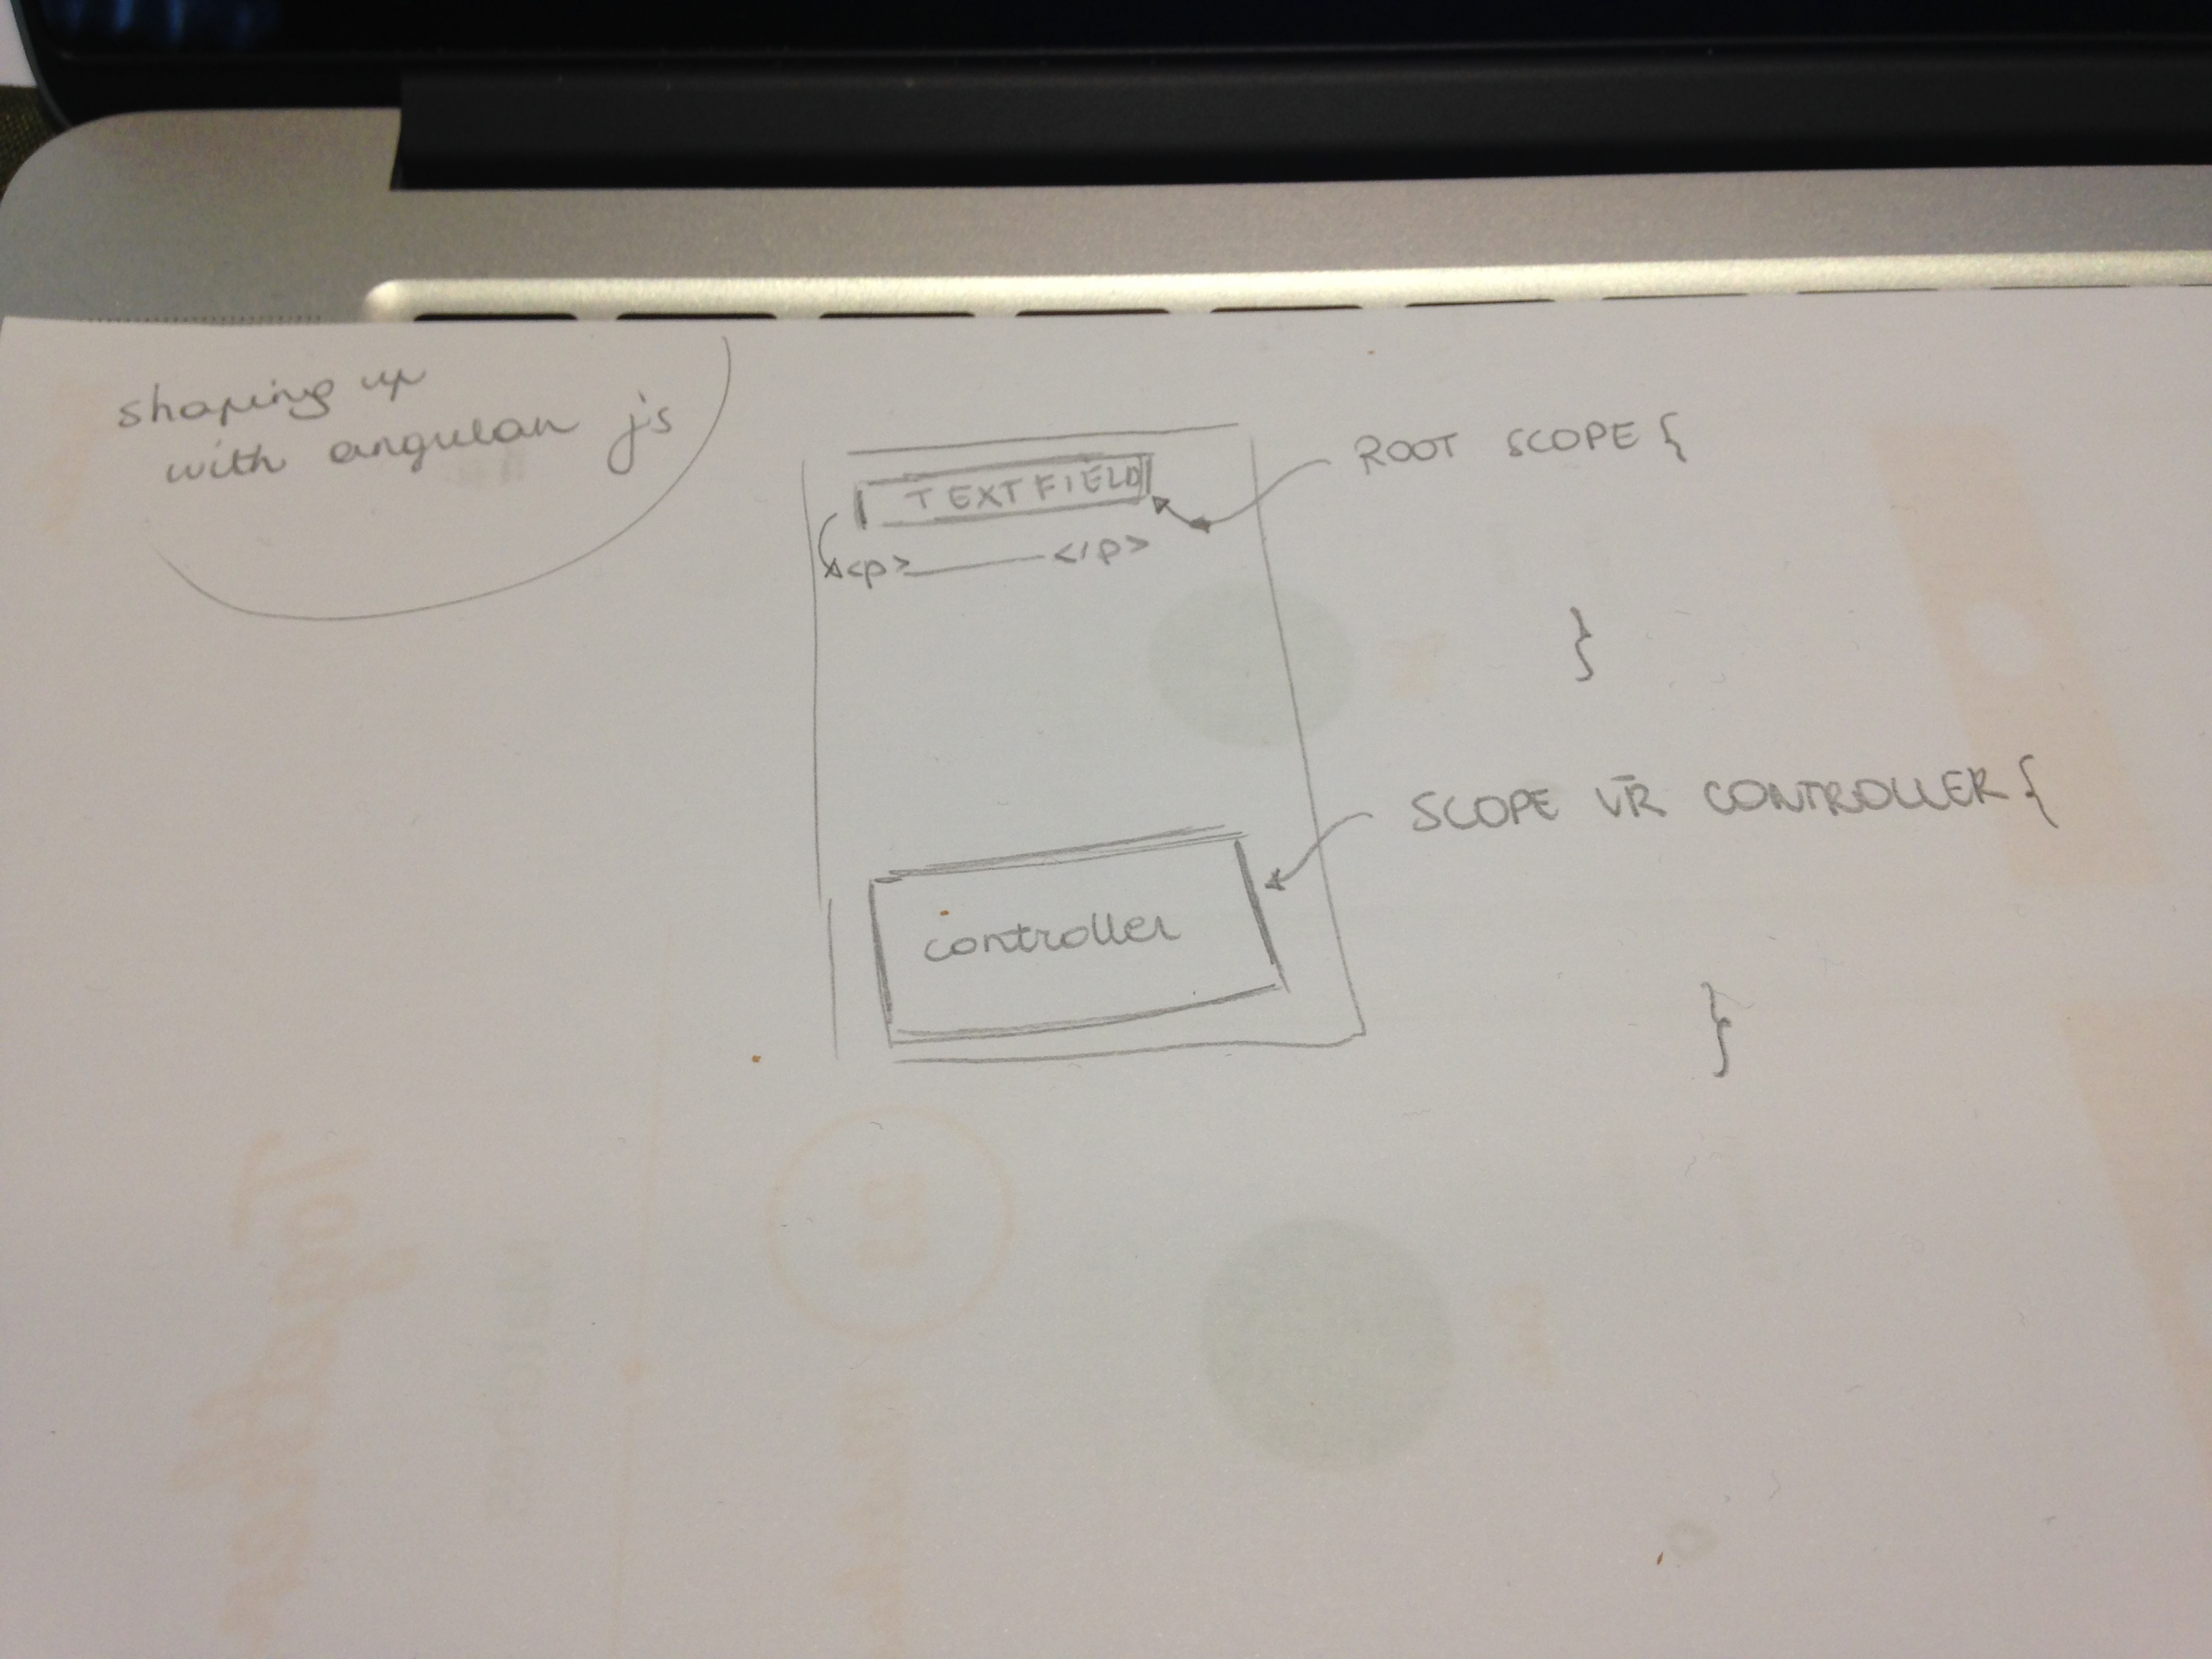 shaping up
with angular js
TEXTFIELD
<p> </p>
ROOT SCOPE {
}
SCOPE VR CONTROLLER {
controller
}